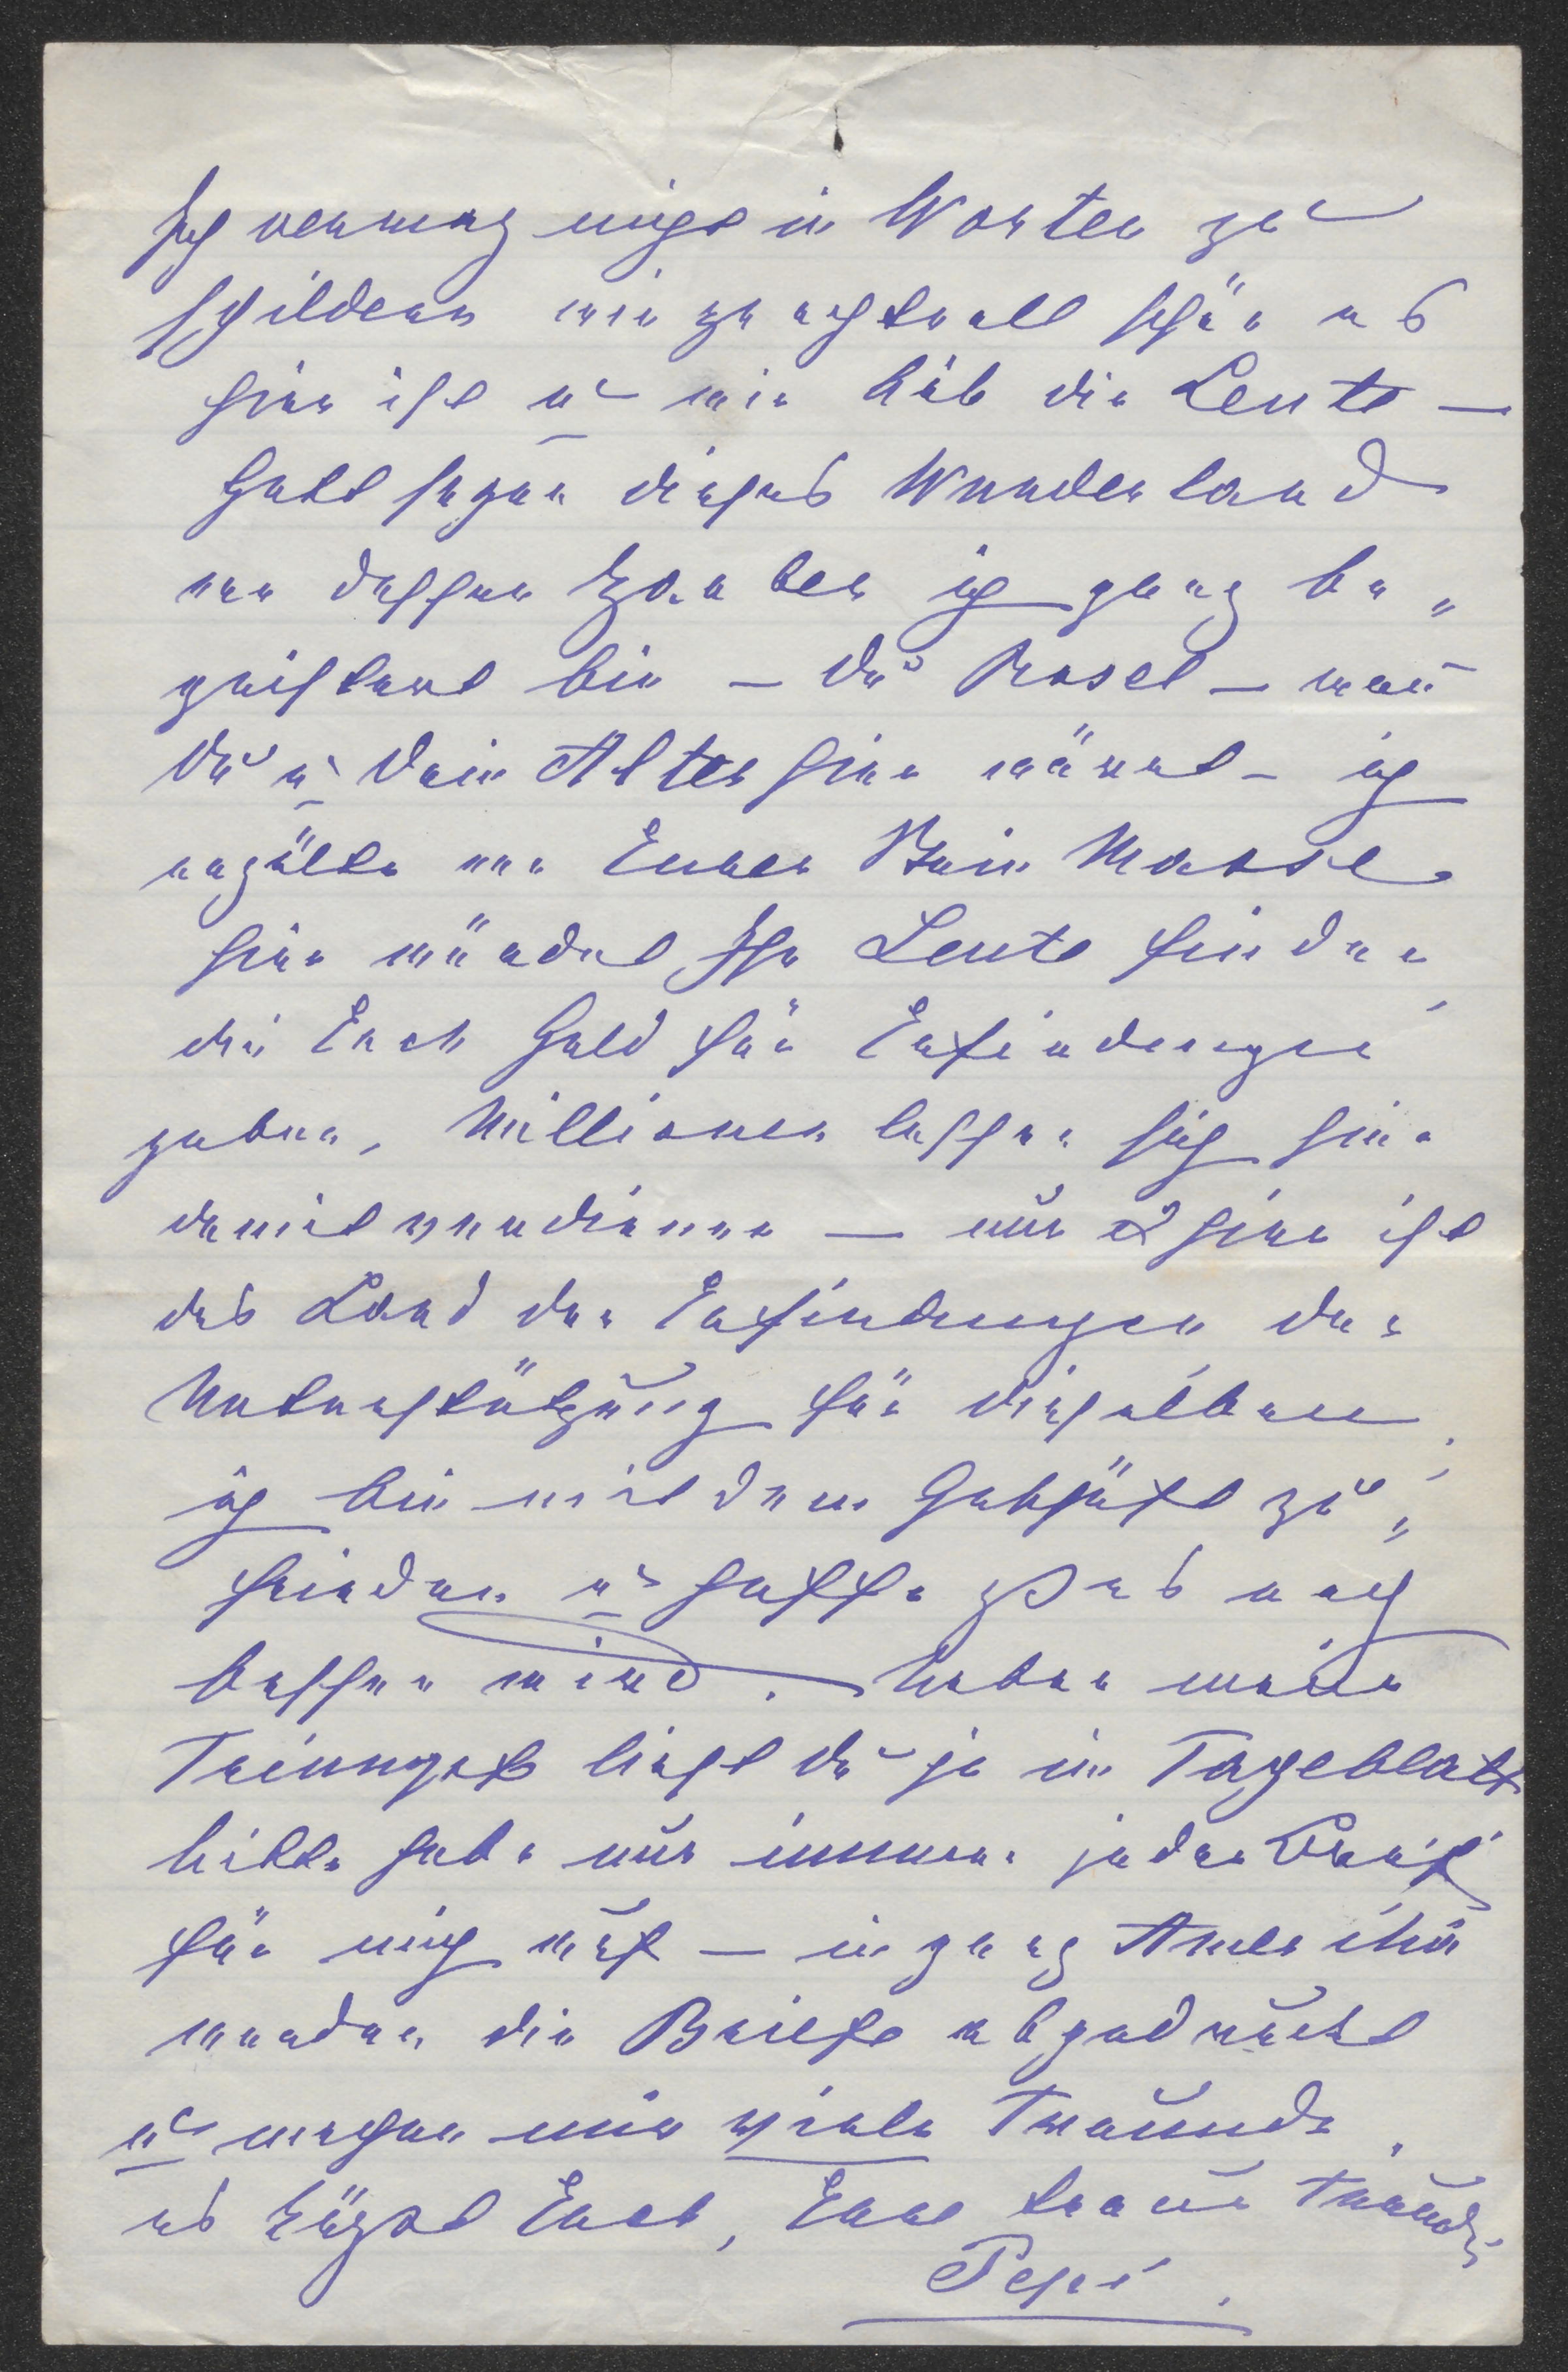 Ich vermag nicht in Worten zu
schildern wie prachtvoll schön es
hier ist u wie lieb die Leute —
Gott segne dieses Wunderland
von dessen Zauber ich ganz be„
geistert bin — Du Rosel — wen̄
Du u Dein Alter hier wäret — ich
erzälte von Eurer
hier würdet Ihr Leute finden,
die Euch Geld für Erfindungen
geben, Millionen lassen sich hier
damit verdienen — nur hier ist
das Land der Erfindungen der
Unterstützung für dieselben,
ich bin mit dem Geschäft zu„
frieden u hoffe es noch
besser wird. — Ueber meine
Triumpfe liest Du ja im Tageblatt
bitte hebe nur immer jeden Brief
für mich auf — in ganz Amerika
werden die Briefe abgedruckt
u machen mir viele Freunde,
es küsst Euch, Eure treue Freundin
Pepi.